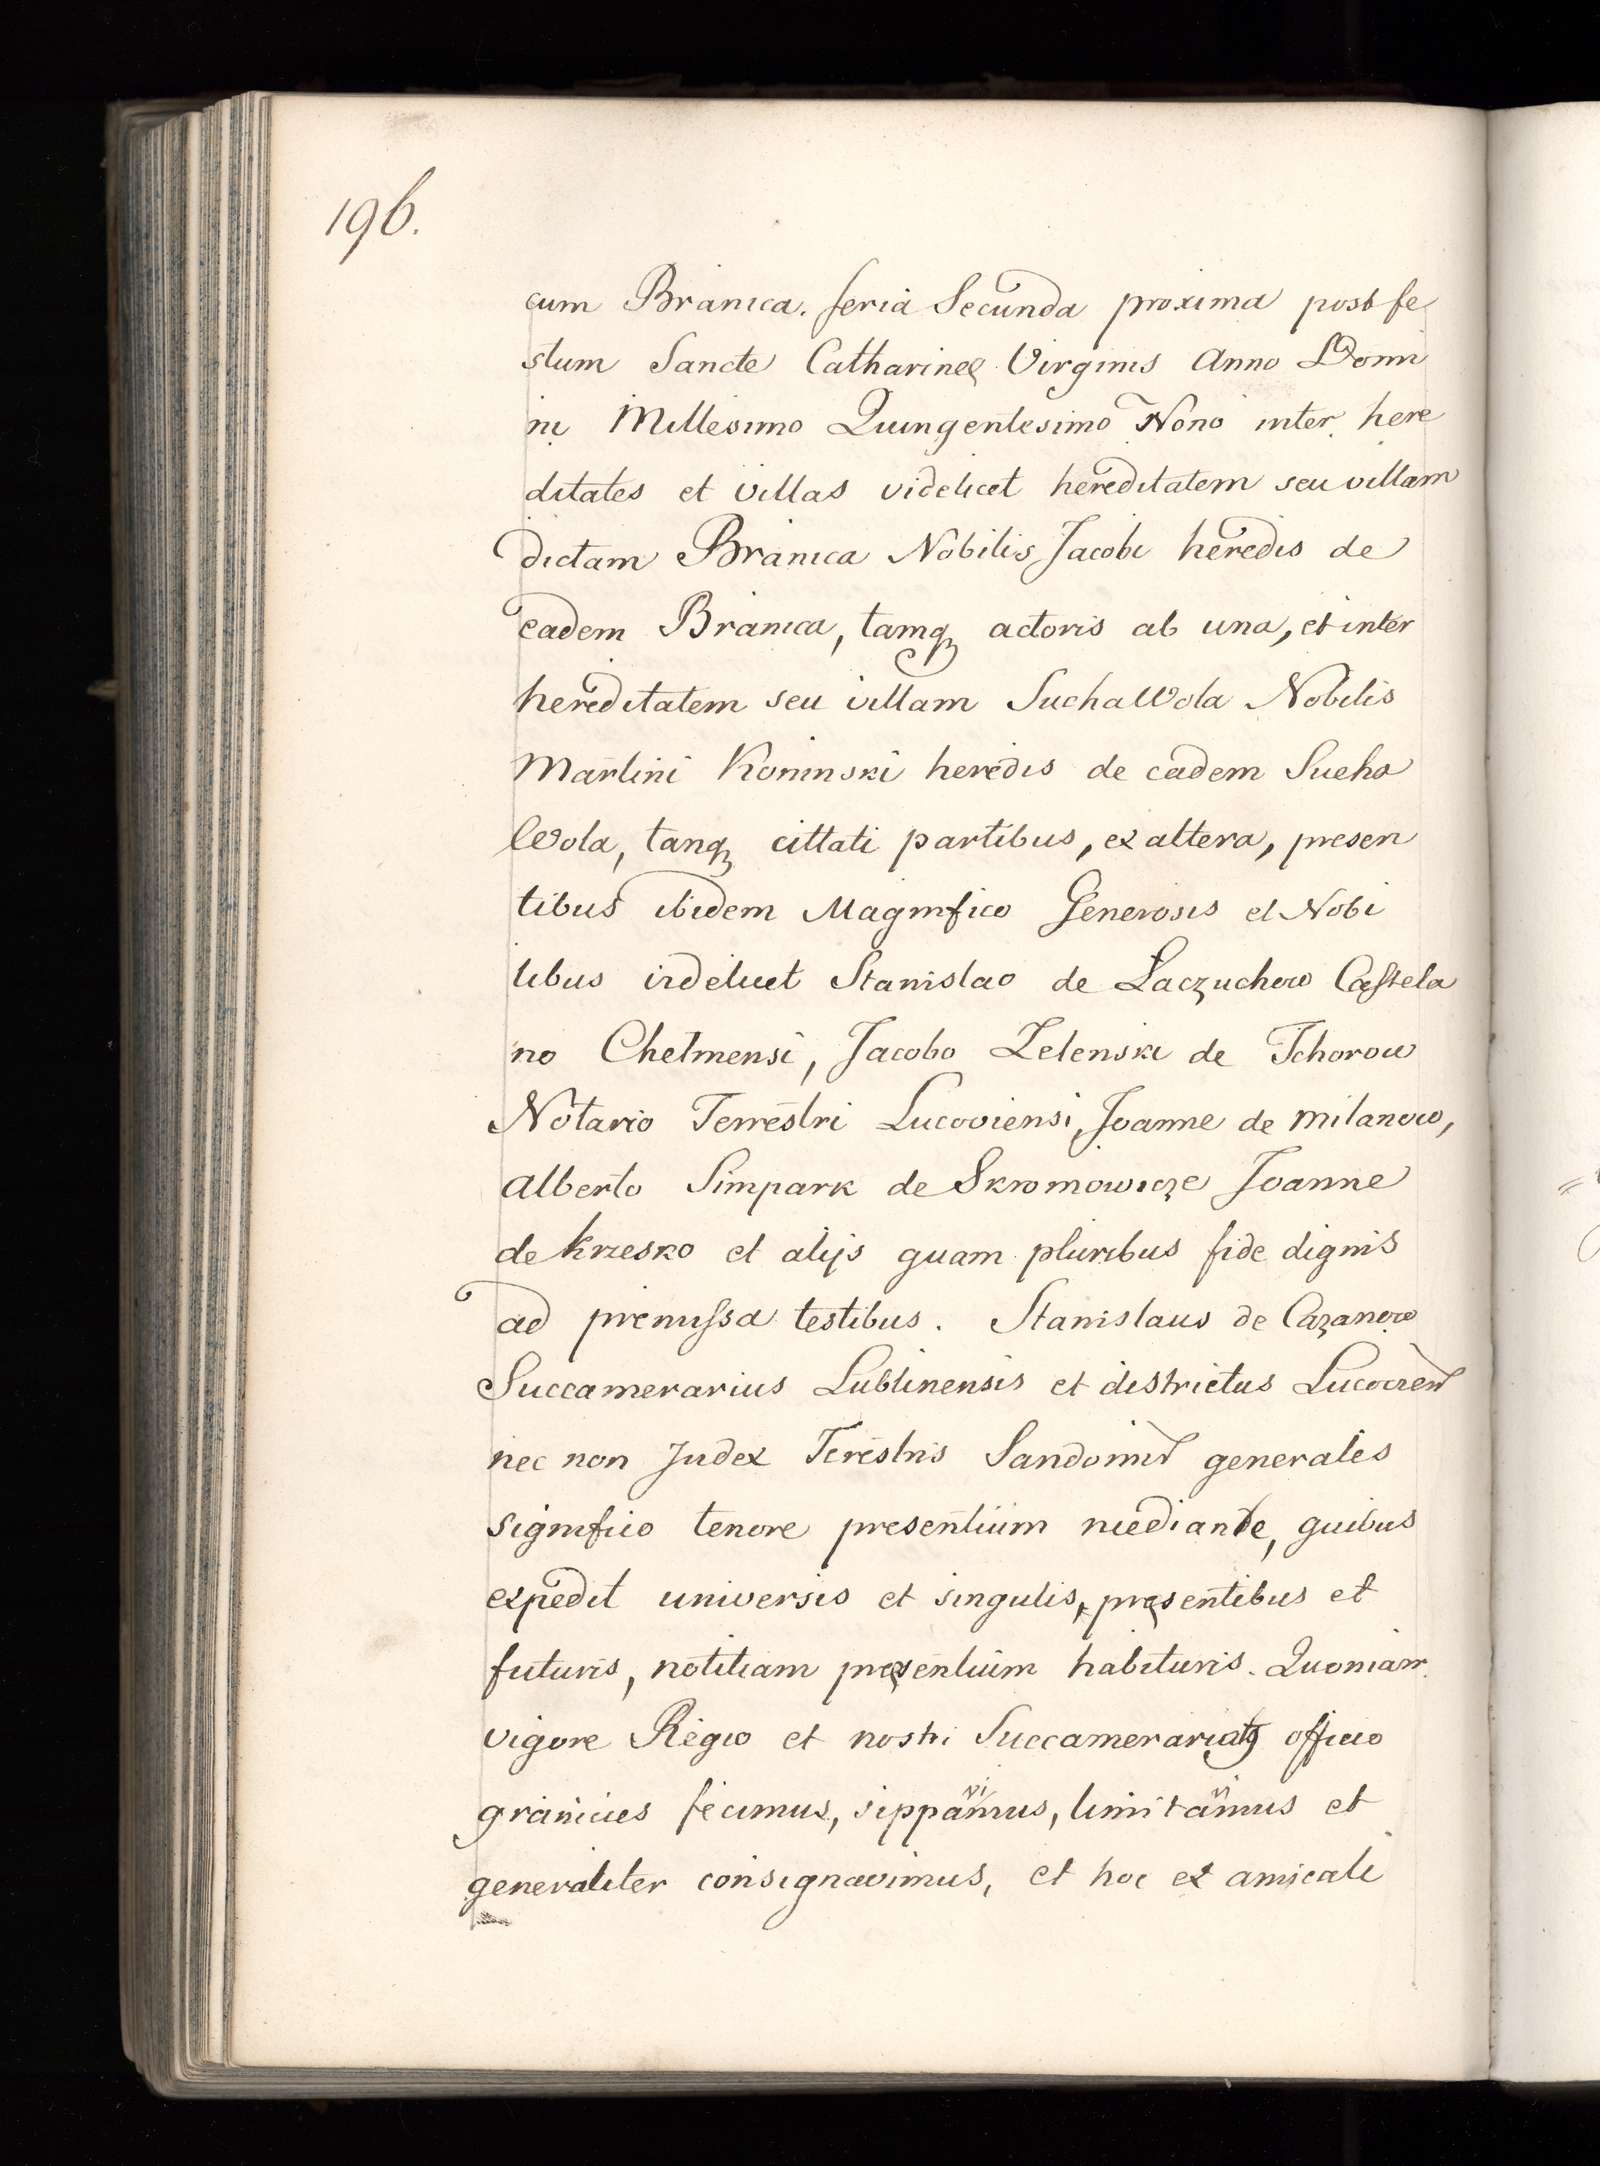 196.
cum Branica. feria Secunda proxima post fe
stum Sancte Catharineę Virginis Anno Domi
ni Millesimo Quingentesimo Nono inter here
ditates et villas videlicet hereditatem seu villam
dictam Branica Nobilis Jacobi heredis de
eadem Branica, tamq actoris ab una, et inter
hereditatem seu villam SuchaWola Nobilis
Martini Koninski heredis de eadem Sucha
Wola, tanq cittati partibus, ex altera, presen
tibus ibidem Magnifico Generosis et Nobi
libus videlicet Stanislao de Laczuchow Castela
no Chelmensi, Jacobo Zelenski de Tchorow
Notario Terrestri Lucoviensi, Joanne de Milanow,
Alberto Simpark de Skromowicze Joanne
de Krzesko et alijs quam pluribus fide dignis
ad premissa testibus. Stanislaus de Cazanow
Succamerarius Lublinensis et districtus
nec non Judex Terestris generales
significo tenore presentium mediante, quibus
expedit universis et singulis, pręsentibus et
futuris, notitiam pręsentium habituris. Quoniam
vigore Regio et nostri officio
granicies fecimus, sippavimus, limitavimus et
generaliter consignavimus, et hoc ex amicali